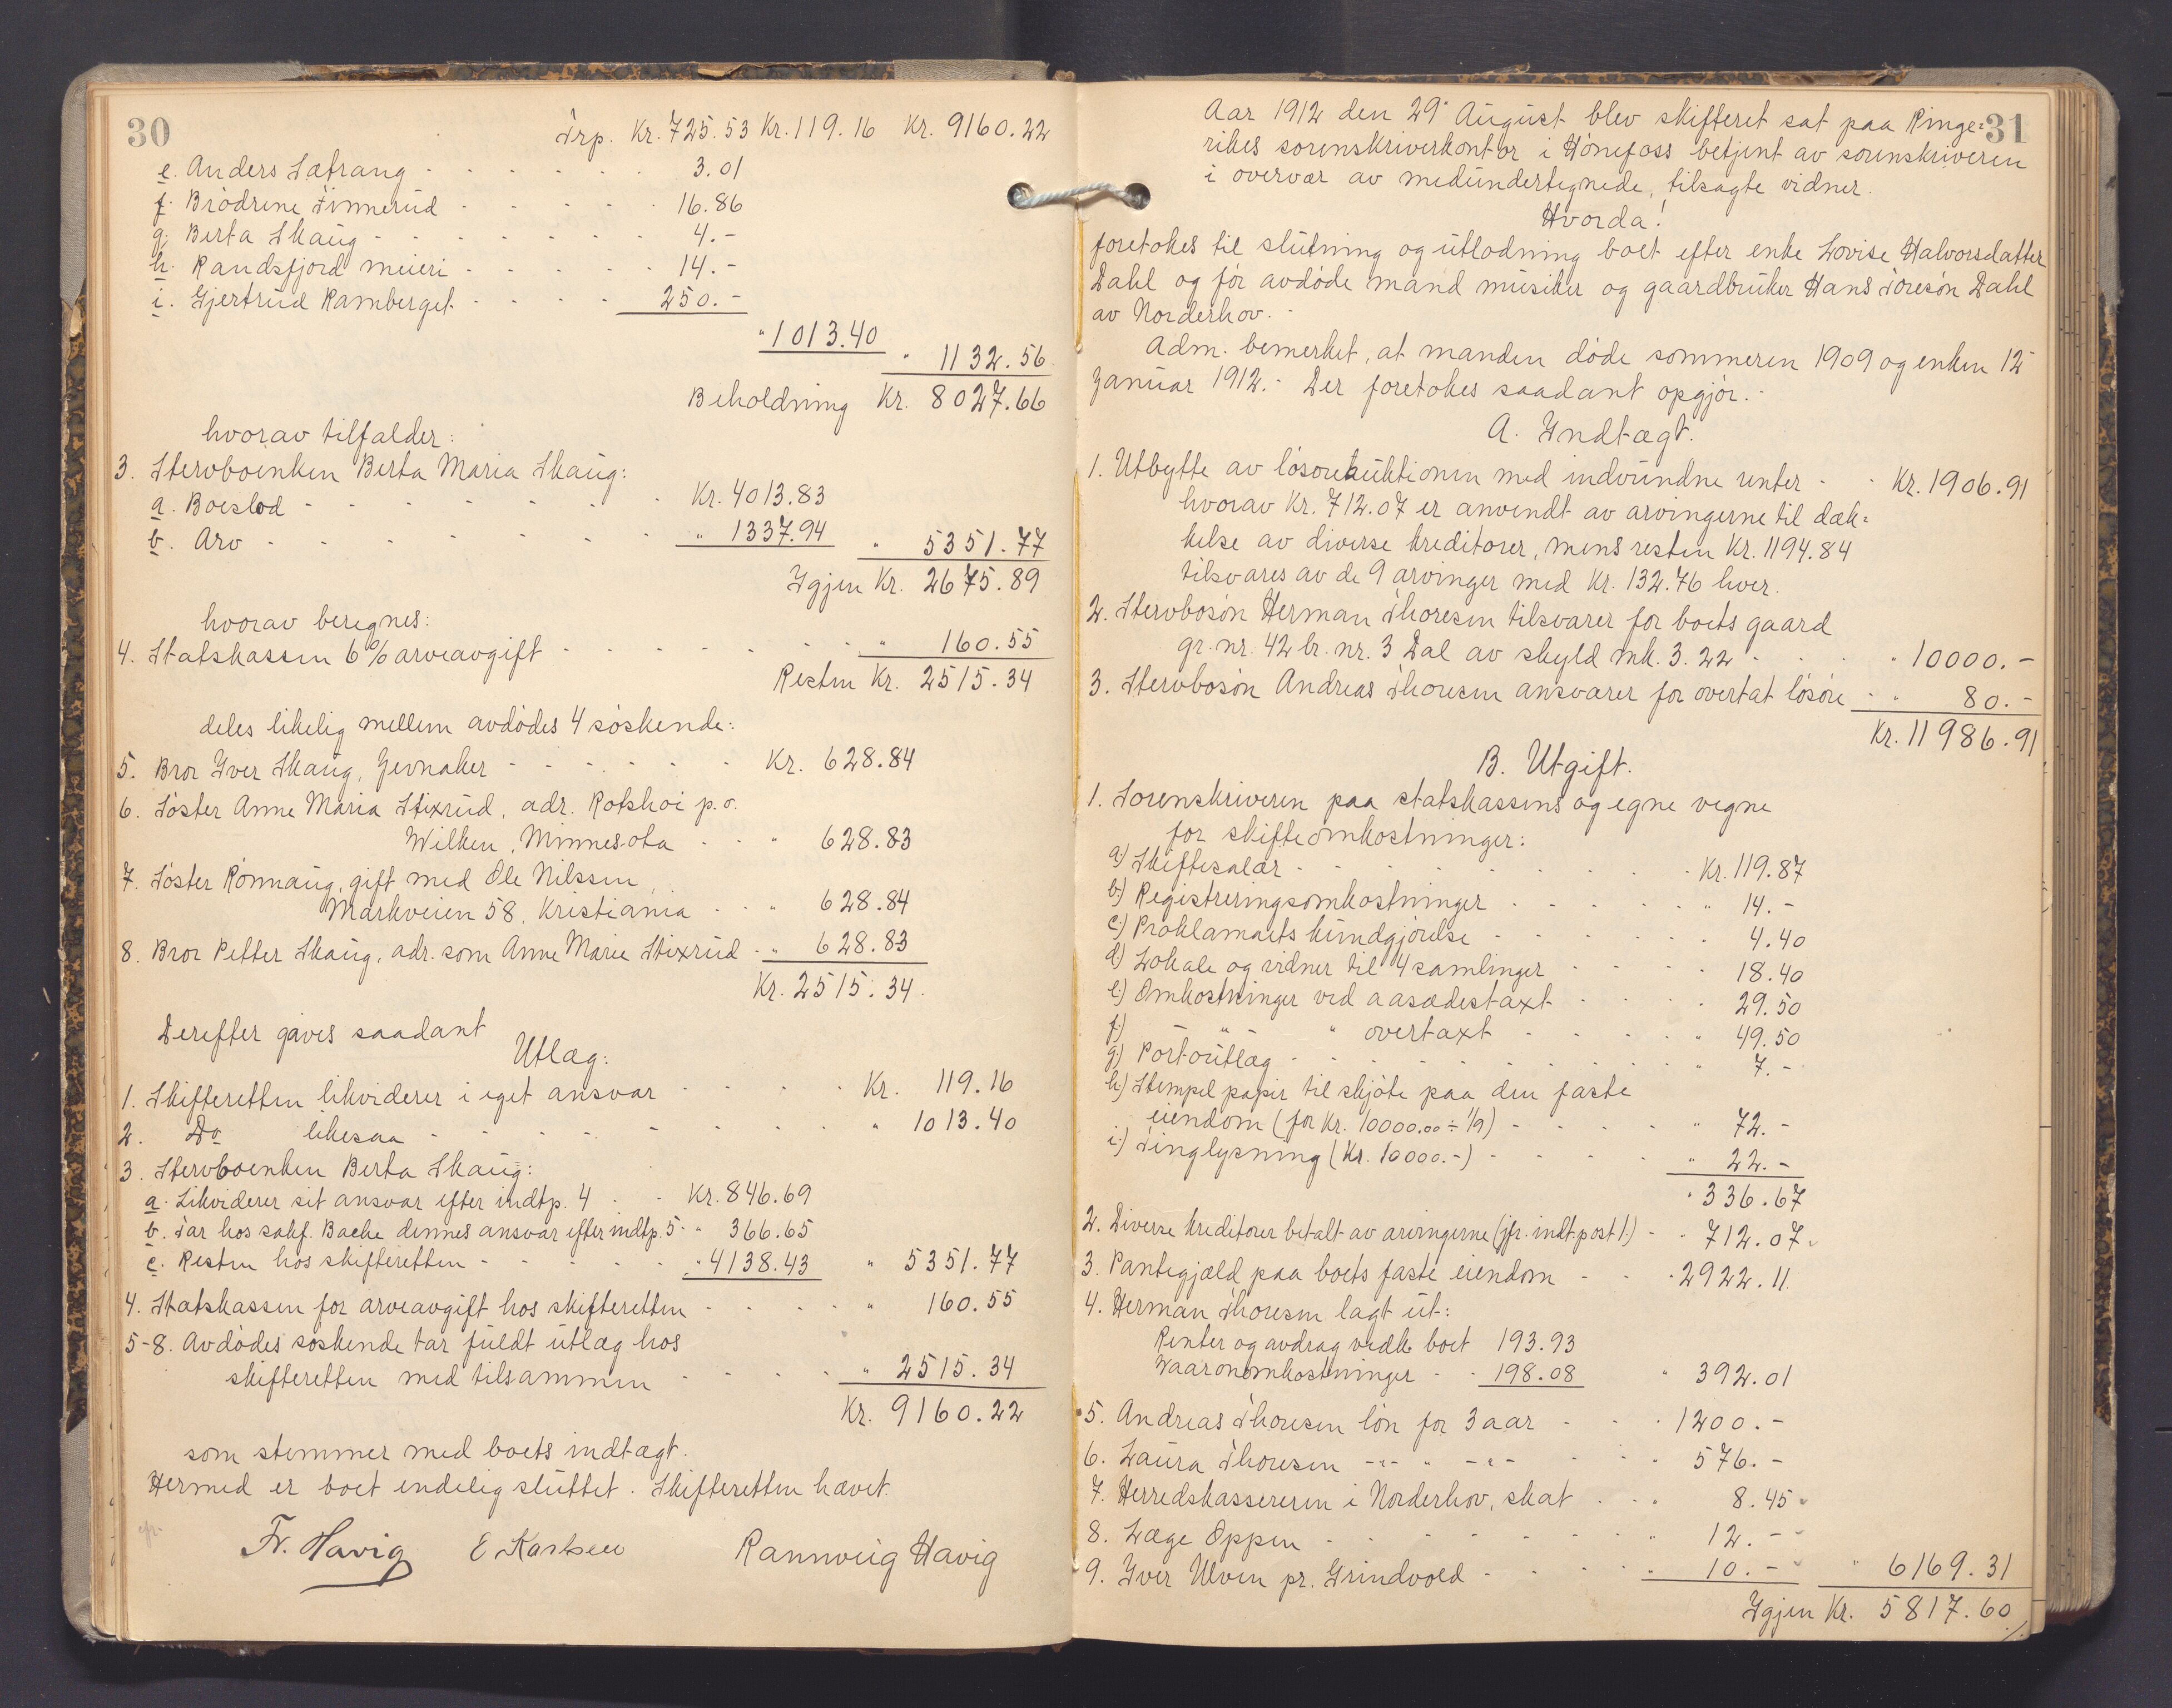 30
Trp. Kr. 725.53 Kr. 119.16 Kr. 9160.22
e. Anders Lætrang - - - - - 3.01
f. Brødrene Finnerud - - - - - 16.86
g. Berta Skaug - - - - - - 4.-
h. Randsfjord meieri - - - - - 14.-
i. Gjertrud Ramberget - - - - 250.-
" 1013.40
" 1132.56
Beholdning Kr. 8027.66
hvorav tilfalder:
3. Stervboenken Berta Maria Skaug:
a. Boeslod - - - - - - - Kr. 4013.83
b. Arv - - - - - - - " 1337.94 " 5351.77
Igjen Kr. 2675.89
hvorav beregnes:
4. Statskassen 6% arveavgift - - - - - - " 160.55
Resten Kr. 2515.34
deles likelig mellem avdødes 4 søskende:
5. Bror Iver Skaug, Jevnaker - - - - - - Kr. 628.84
6. Søster Anne Maria Stixrud, adr. Rotskoi p.o.
Wilken, Minnesota - - " 628.83
7. Søster Rønnaug, gift med Ole Nilssen,
Markveien 58, Kristiania - - " 628.84
8. Bror Petter Skaug, adr. som Anne Marie Stixrud - " 628.83
Kr. 2515.34.
Derefter gaves saadant
Utlæg:
1. Skifteretten likviderer i eget ansvar - - - - Kr. 119.16
2. Do likesaa - - - - - - - - " 1013.40
3. Stervboenken Berta Skaug:
a. Likviderer sit ansvar efter indtp. 4 - - Kr. 846.69
b. Tar hos sakf. Bache dennes ansvar efter indtp. 5 - " 366.65
c. Resten hos skifteretten - - - - - " 4138.43 " 5351.77
4. Statskassen for arveavgift hos skifteretten - - - - " 160.55
5-8. Avdødes søskende tar fuldt utlæg hos
skifteretten med tilsammen - - - - " 2515.34
Kr. 9160.22
som stemmer med boets indtægt.
Hermed er boet endelig sluttet. Skifteretten hævet.
Fr. Havig E Karlsen Rannveig Havig
31
Aar 1912 den 29' August blev skifteret sat paa Ringe=
rikes sorenskriverkontor i Hønefoss betjent av sorenskriveren
i overvær av medundertegnede, tilsagte vidner.
Hvorda!
foretokes til slutning og utlodning boet efter enke Lovise Halvorsdatter
Dahl og før avdøde mand musiker og gaardbruker Hans Toresøn Dahl
av Norderhov.-
Adm. bemerket, at manden døde sommeren 1909 og enken 12'
Januar 1912.- Der foretokes saadant opgjør.-
A. Indtægt.
1. Utbytte av løsøreauktionen med indvundne renter - - Kr. 1906.91
hvorav Kr. 712.07 er anvendt av arvingerne til dæk=
kelse av diverse kreditorer, mens resten Kr. 1194.84
tilsvares av de 9 arvinger med Kr. 132.76 hver.
2. Stervbosøn Herman Thoresen tilsvarer for boets gaard
gr. nr. 42 br. nr. 3 Dal av skyld mk. 3.22 - - - " 10000.-
3. Stervbosøn Andreas Thoresen ansvarer for overtat løsøre - " 80.-
Kr. 11986.91
B. Utgift.
1. Sorenskriveren paa statskassens og egne vegne
for skifteomkostninger:
a) Skiftesalær - - - - - - - - Kr. 119.87
b) Registreringsomkostninger - - - - - " 14.-
c) Proklamaets kundgjørelse - - - - - - " 4.40
d) Lokale og vidner til 4 samlinger - - - - 18.40
e) Omkostninger ved aasædestaxt - - - - 29.50
f) - " - " overtaxt - - - - " 49.50
g) Portoutlæg - - - - - - - - " 7.-
h) Stempel papir til skjøte paa den faste
eiendom (for Kr. 10000.00 ÷ 1/9) - - - - " 72.-
i) Tinglysning (Kr. 10000.-) - - - - - " 22.-
" 336.67
2. Diverse kreditorer betalt av arvingerne (jfr. indt. post 1) - - " 712.07
3. Pantegjæld paa boets faste eiendom - - - " 2922.11
4. Herman Thoresen lagt ut:
Renter og avdrag vedk. boet 193.93
Vaaronnomkostninger - - 198.08 " 392.01
5. Andreas Thoresen løn for 3 aar - - - " 1200.-
6. Laura Thoresen -"- " -"- - - " 576.-
7. Herredskassereren i Norderhov, skat - - - 8.45
8. Læge Oppen - - - - - - - - " 12.-
9. Iver Ulven pr. Grindvold - - - - - " 10.- " 6169.31
Igjen Kr. 5817.60